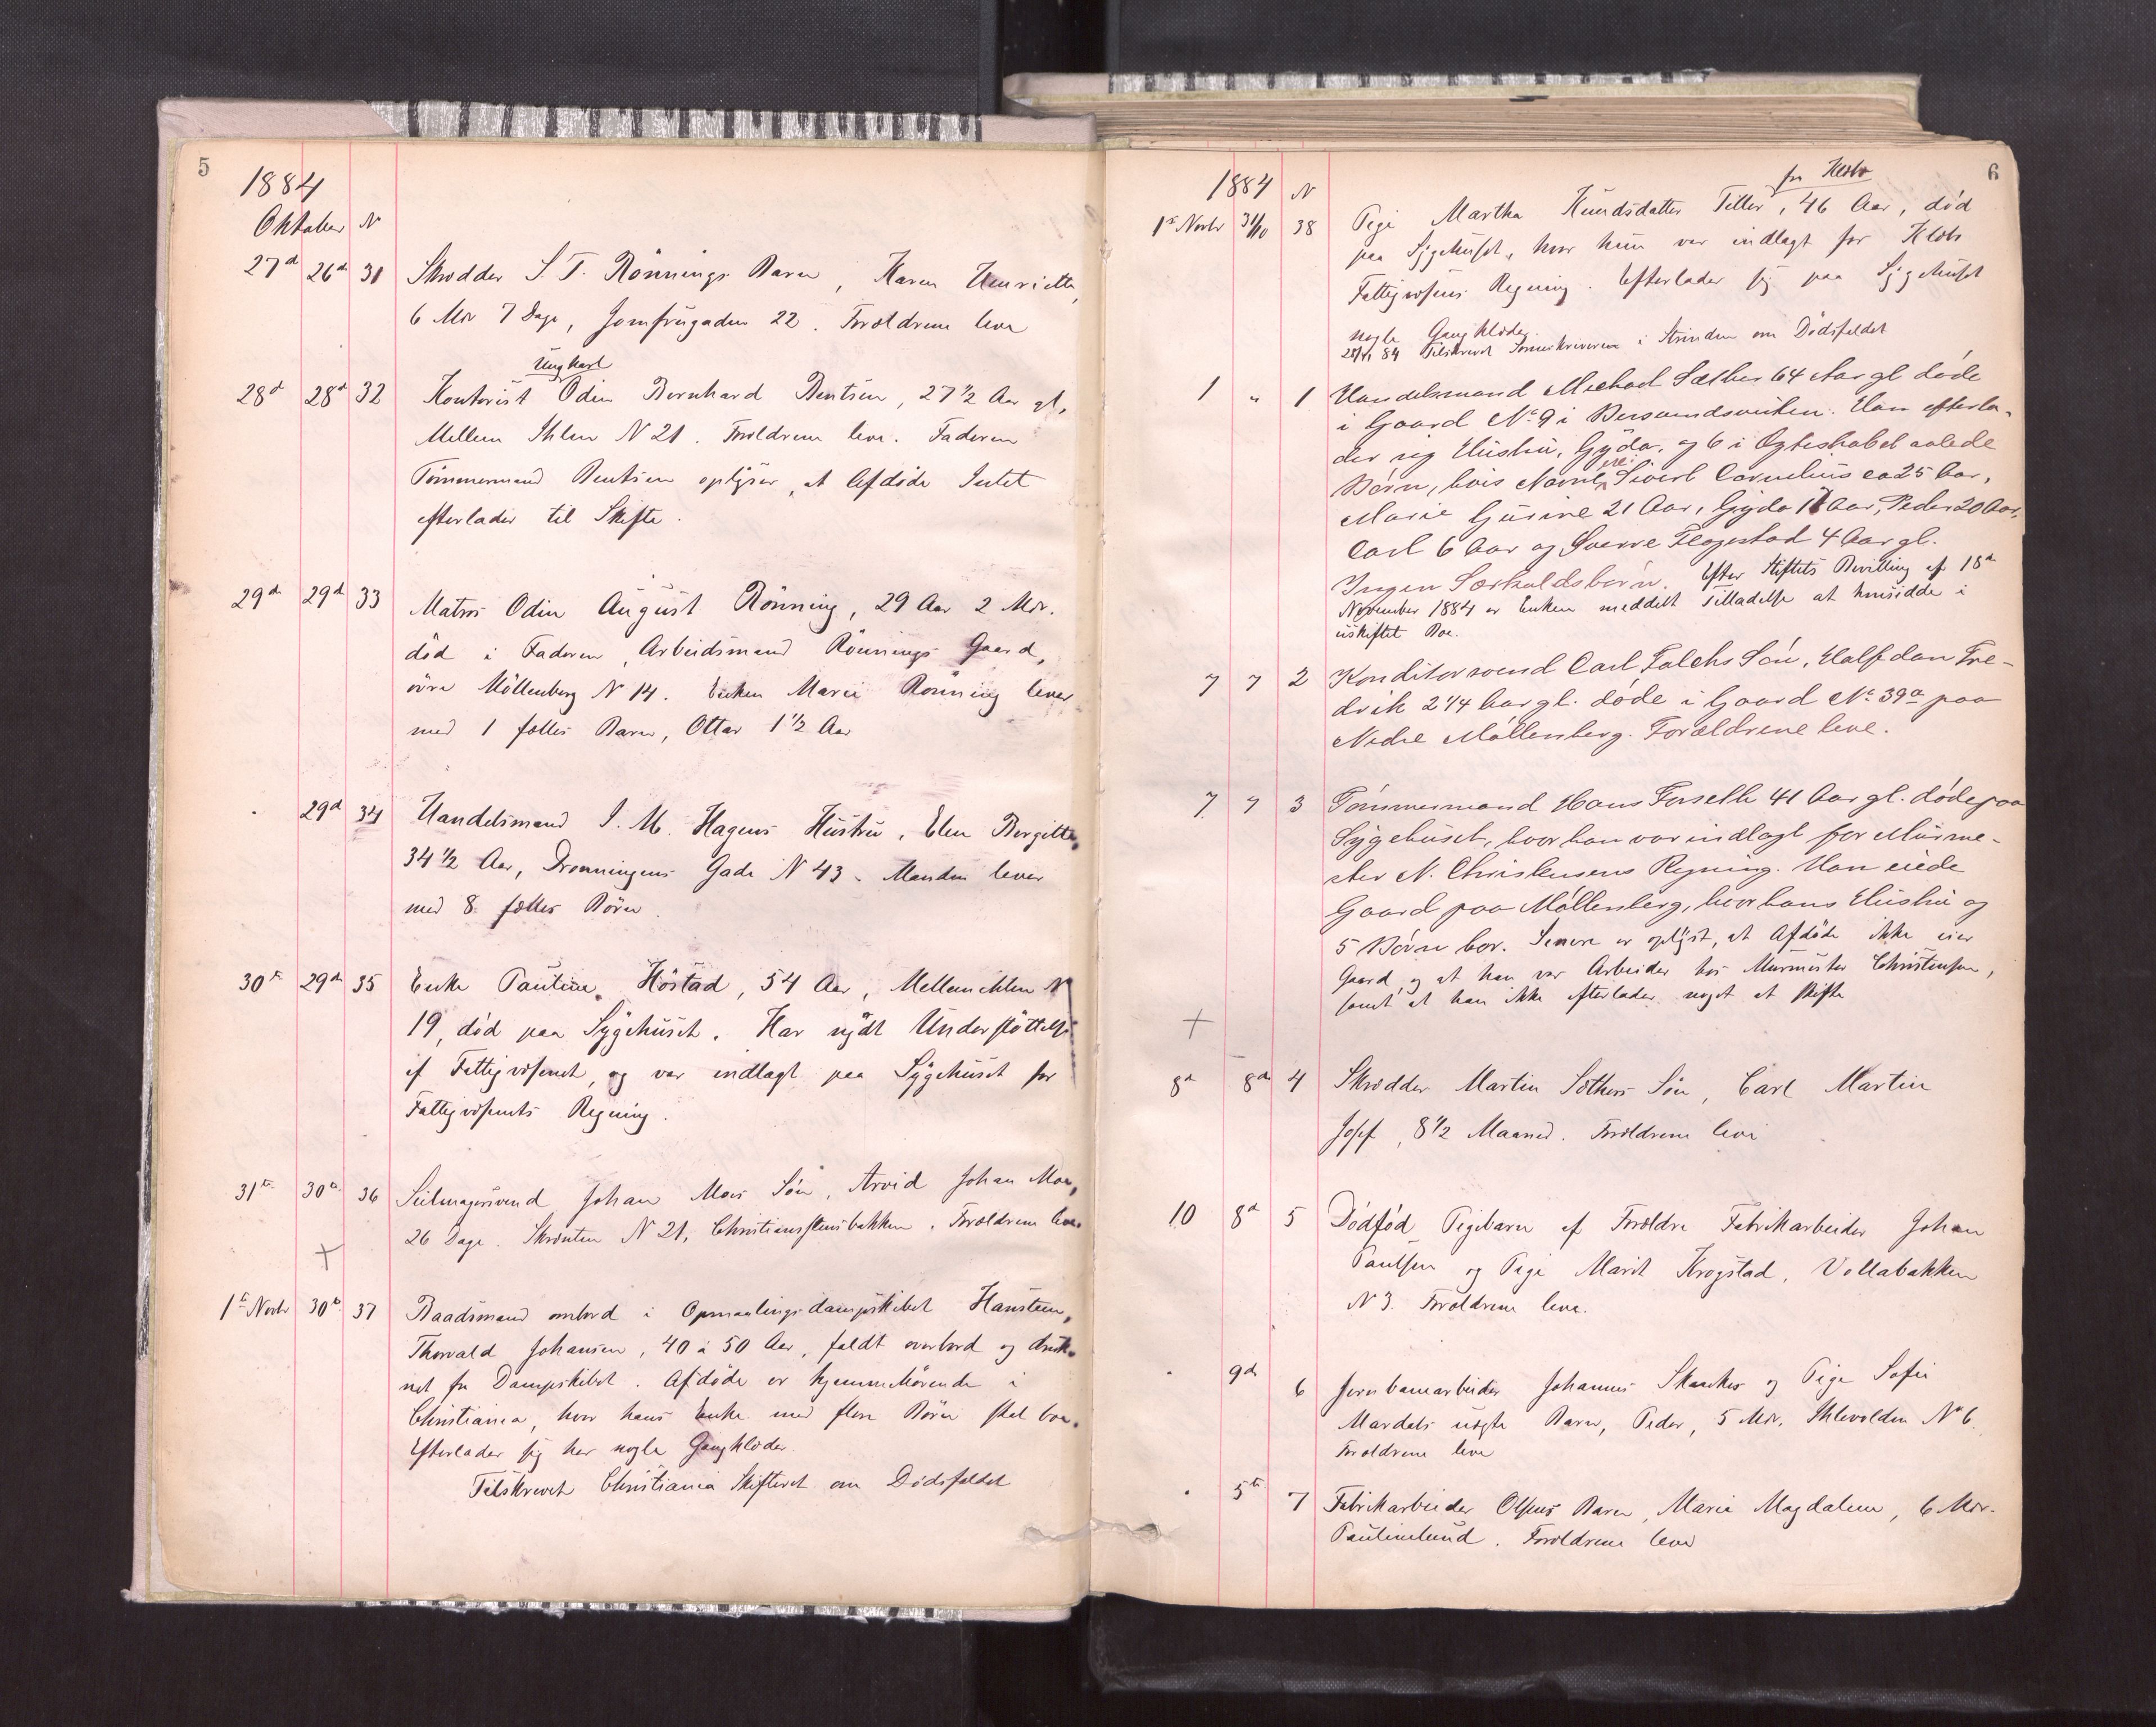 5
1884
Oktober N
27d 26d 31 Skrædder S. T. Rönnings Barn, Karen Henriette,
6 Mdr 7 Dage, Jomfrugaden 22. Forældrene leve
Ungkarl
28d 28d 32 Kontorist Odin Bernhard Bentsen, 27 1/2 Aar gl,
Mellem Ihlen N 21. Forældrene leve. Faderen
Tömmermand Bentsen oplyser, at Afdöde Intet
efterlader til Skifte.
29de 29d 33 Matros Odin August Rönning, 29 Aar 2 Mdr.
död i Faderen, Arbeidsmand Rönnings Gaard,
övre Möllenberg N 14. Enken Marie Rönning lever
med 1 fælles Barn, Ottar 1 1/2 Aar
29d 34 Handelsmand I. M. Hagens Hustru, Elen Bergitte,
34 1/2 Aar, Dronningens Gade N 43. Manden lever
med 8 fælles Börn.
30te 29d 35 Enke Pauline Höstad, 54 Aar, Mellemihlen N
19, död paa Sygehuset. Har nydt Understöttelse
af Fattigvæsenet, og var indlagt paa Sygehuset for
Fattigvæsenets Regning.
31te 30te 36 Seilmagersvend Johan Moes Sön, Arvid Johan Moe,
26 Dage. Skrænten N 21, Christianstensbakken. Forældrene leve.
1te Novbr 30te 37 Baadsmand ombord i Opmaalingsdampskibet Hansteen,
Thorvald Johansen, 40 à 50 Aar, faldt overbord og druk-
net fra Dampskibet. Afdöde er hjemmehörende i
Christiania, hvor hans Enke med flere Börn skal boe.
Efterlader sig her nogle Gangklæder.
Tilskrevet Christiania Skifteret om Dödsfaldet
6
1884 N
fra Klæbo
1te Novbr 31/10 38 Pige Martha Knudsdatter Tiller, 46 Aar, död
paa Sygehuset, hvor hun var indlagt for Klæbo
Fattigvæsens Regning. Efterlader sig paa Sygehuset
nogle Gangklæder.
84 Tilskrevet Sorenskriveren i Strinden om Dödsfaldet
1 " 1 Handelsmand Michael Sæther 64 Aar gl. döde
i Gaard No 9 i Bersvendsveiten. Han efterla-
der sig Hustru, Gyda, og 6 i Ægteskabet avlede
Börn, hvis Navne ere: Sivert Cornelius ca 25 Aar,
Marie Gurine 21 Aar, Gyda 17 Aar, Peder 20 Aar,
Carl 6 Aar og Sverre Flagestad 4 Aar gl.
Ingen Særkuldsbörn. Efter Stiftets Bevilling af 18de
November 1884 er Enken meddelt Tilladelse at hensidde i
uskiftet Boe.
7 7 2 Konditorsvend Carl Falchs Sön, Halfdan Fre-
drik 2 1/4 Aar gl. döde i Gaard No 39a paa
Nedre Möllenberg. Forældrene leve.
7 7 3 Tömmermand Hans Forseth 41 Aar gl. döde paa
Sygehuset, hvor han var indlagt for Murme-
ster N. Christensens Regning. Han eiede
Gaard paa Möllenberg, hvor hans Hustru og
5 Börn bor. Senere er oplyst, at Afdöde ikke eier
Gaard, og at han var Arbeider hos Murmester Christensen,
samt at han ikke efterlader noget at skifte
8de 8de 4 Skrædder Martin Sæthers Sön, Carl Martin
Josef, 8 1/2 Maaned. Forældrene leve
10 8de 5 Dödfød Pigebarn af Forældre Fabrikarbeider Johan
Paulsen og Pige Marit Krogstad, Vollabakken
N 3. Forældrene leve.
9de 6 Jernbanearbeider Johannes Skaankes og Pige Sofie
Mardals uægte Barn, Peder, 5 Mdr, Ihlevolden No 6.
Forældrene leve
5te 7 Fabrikarbeider Olsens Barn, Marie Magdalene, 6 Mdr.
Paulinelund. Forældrene leve